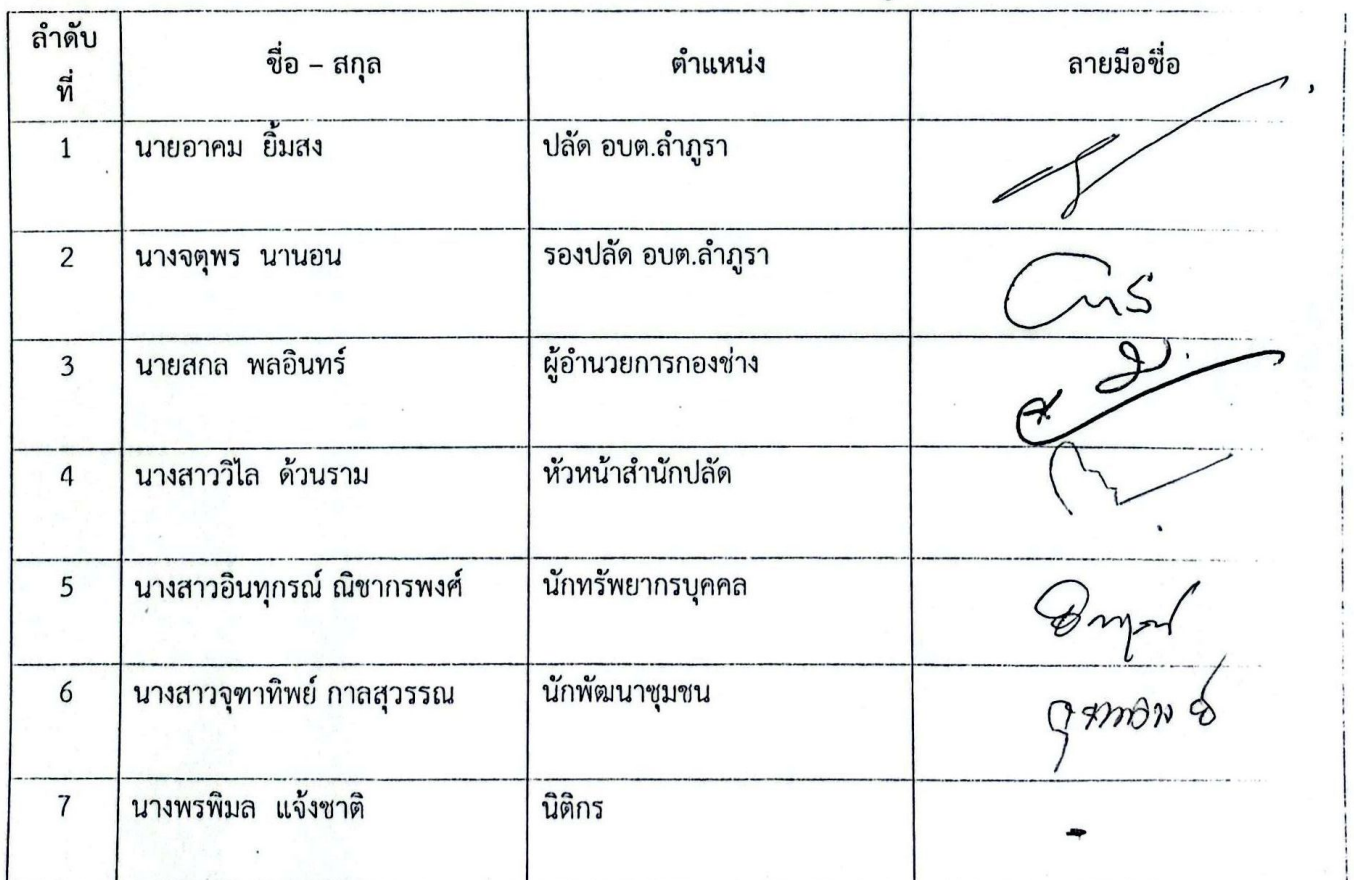 ลำดับ
ที่
ชื่อ – สกุล
ตำแหน่ง
ลายมือชื่อ
1 นายอาคม ยิ้มสง ปลัด อบต.ลำภูรา
2 นางจตุพร นานอน รองปลัด อบต.ลำภูรา
3 นายสกล พลอินทร์ ผู้อำนวยการกองช่าง
4 นางสาววิไล ด้วนราม หัวหน้าสำนักปลัด
5 นางสาวอินทุกรณ์ ณิชากรพงศ์ นักทรัพยากรบุคคล
6 นางสาวจุฑาทิพย์ กาลสุวรรณ นักพัฒนาชุมชน
7 นางพรพิมล แจ้งชาติ นิติกร -